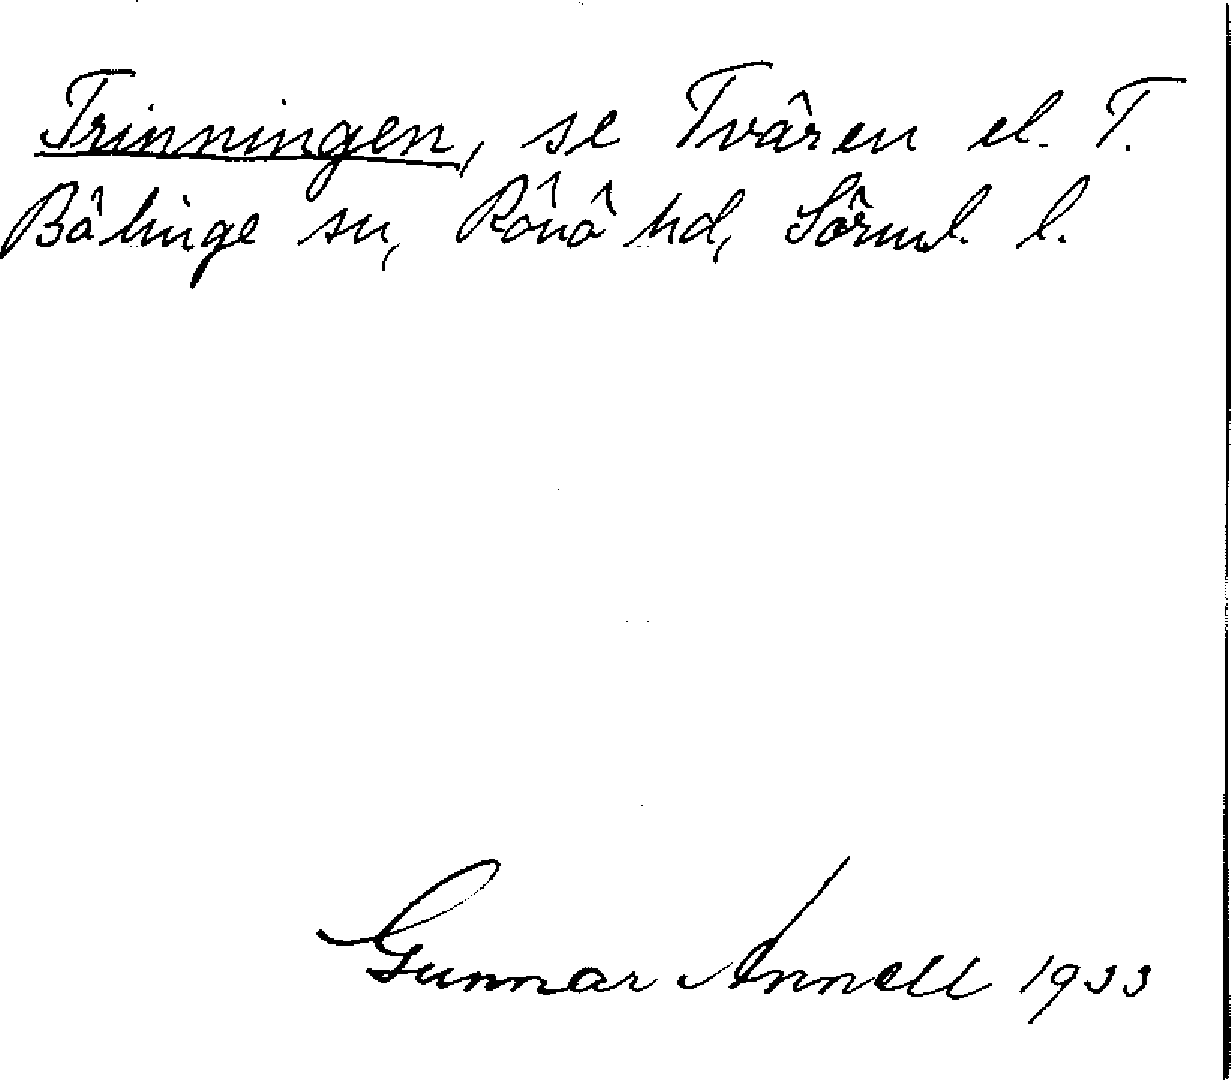 Trinningen, se Tvären el. T.
Bälinge sn, Rönö hd, Sörml. l.
Gunnar Annell 1933